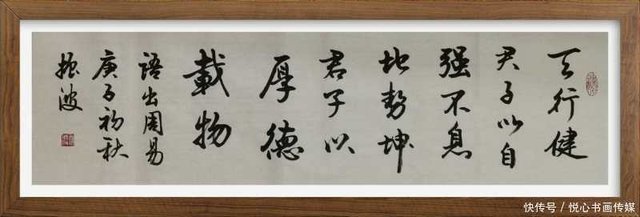 天行健
君子以自
强不息
地势坤
君子以
厚德
載物
语出周易
庚子初秋
振波
快传号 / 悦心书画传媒